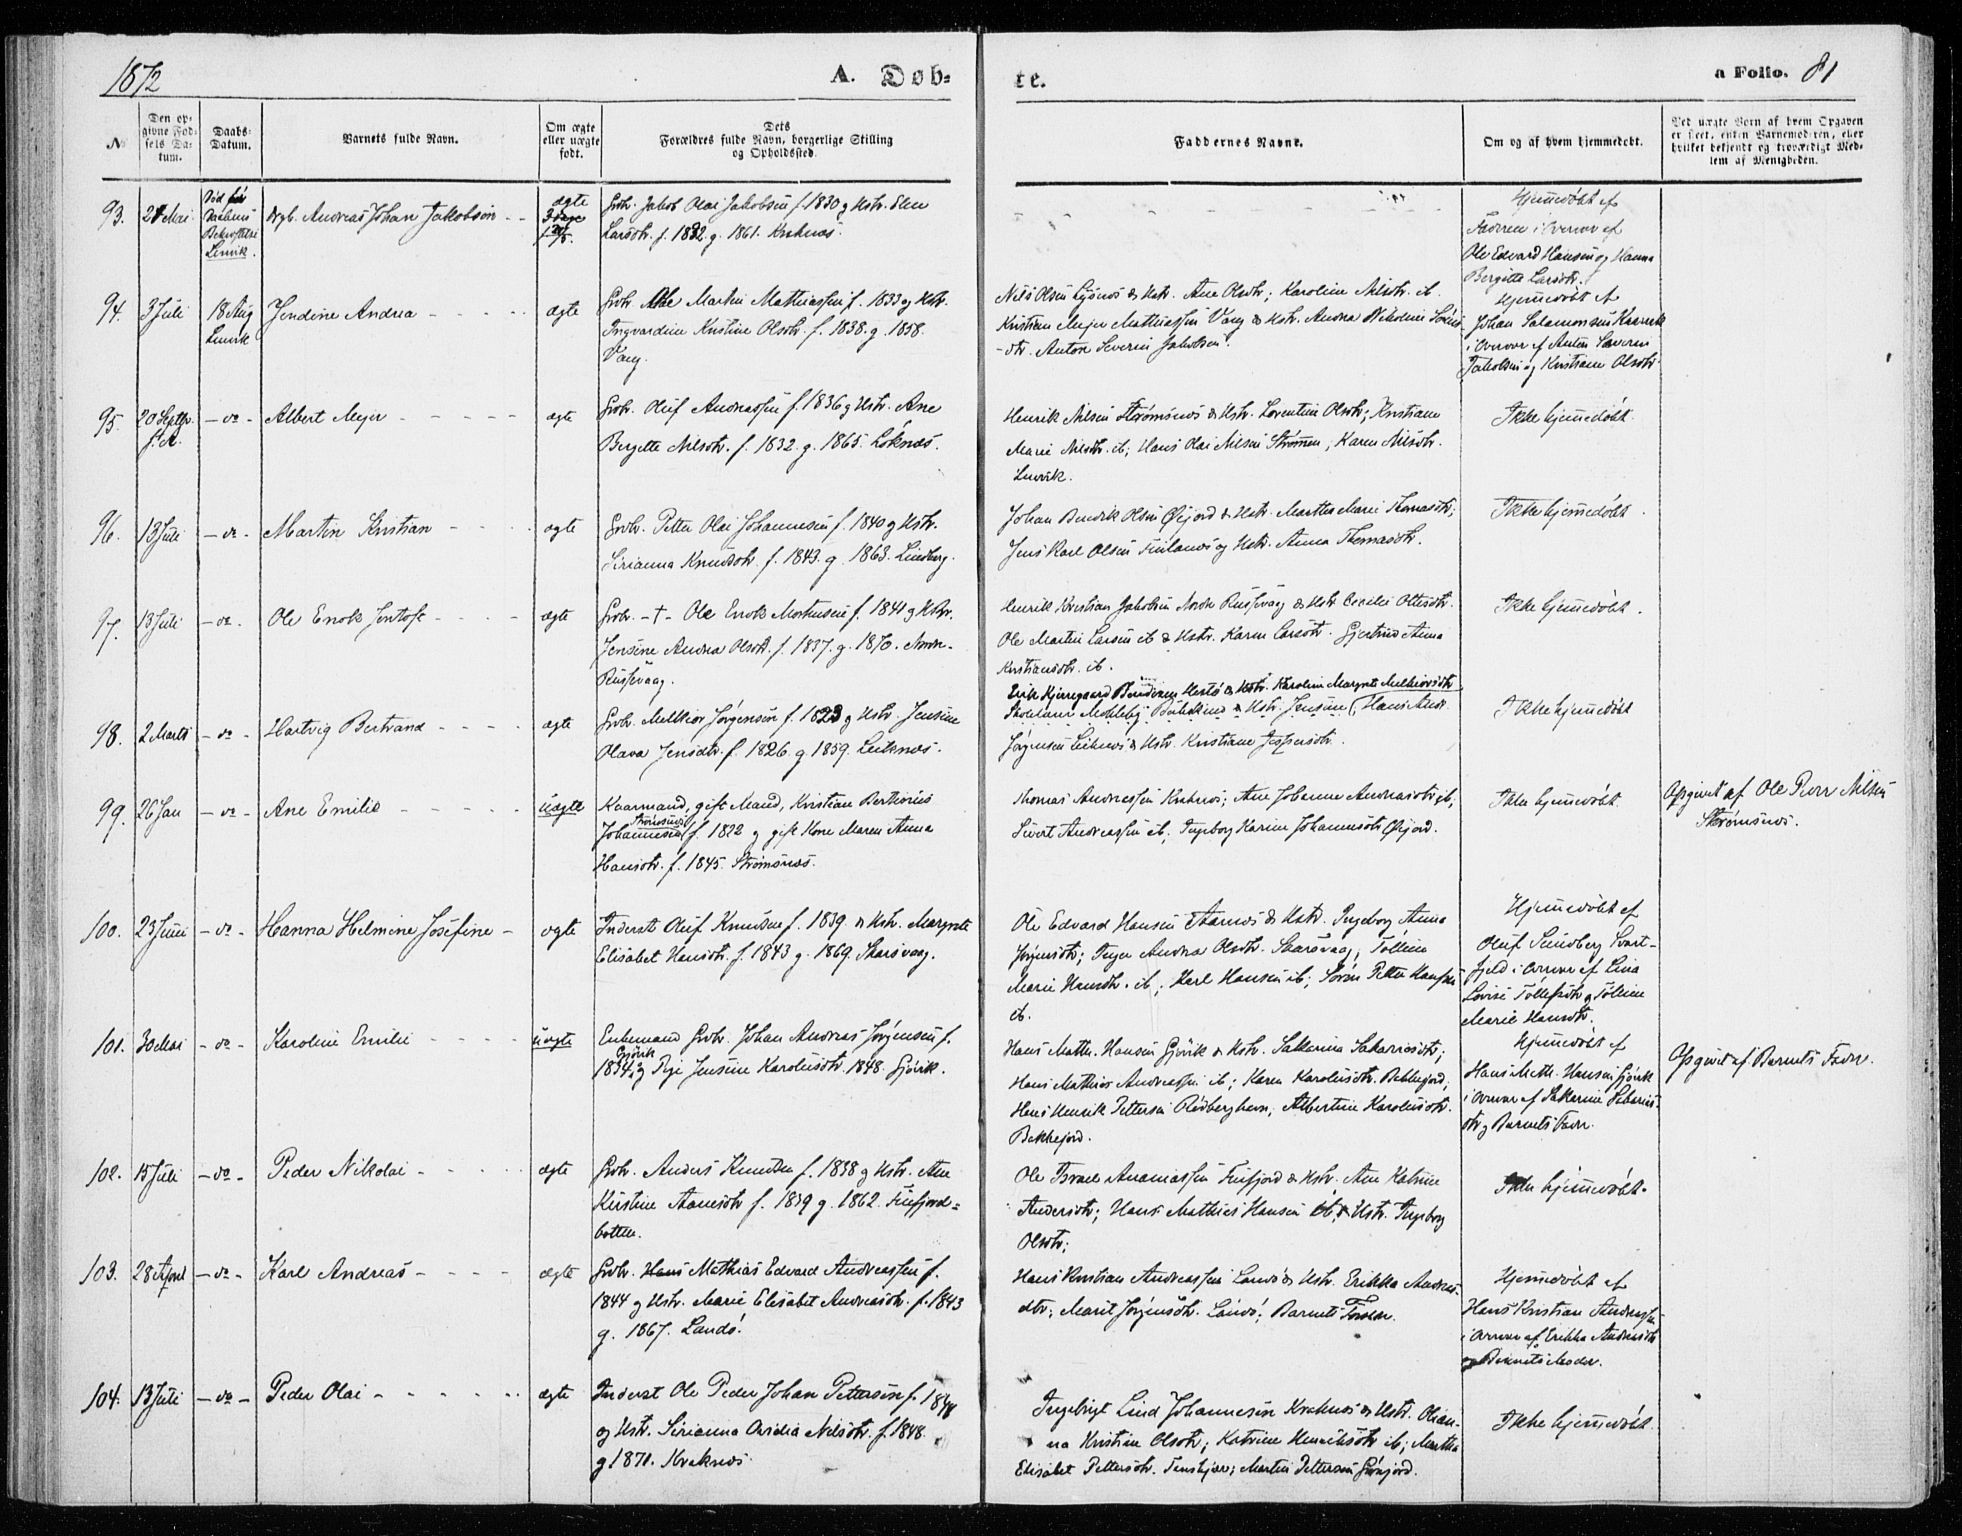 1872
A. Døb-
te.
a Folio. 81
No
Den op-
givne Fød-
sels Da-
tum.
Daabs-
Datum.
Barnets fulde Navn.
Om ægte
eller uægte
født.
Dets
Forældres fulde Navn, borgerlige Stilling
og Opholdssted.
Faddernes Navne.
Om og af hvem hjemmedøbt.
Ved uægte Børn af hvem Opgaven
er skeet, enten Barnemoderen, eller
hvilket bekjendt og troværdigt Med-
lem af Menigheden.
93. Mai Død før
Daabens
Bekræftelse
Lenvik. Andreas Johan Jakobsen - - ægte
Grbr. Jakob Olai Jakobsen f. 1830 og Hstr. Elen
Larsdtr. f. 1832. g. 1861. Kraknæs.
Hjemmedøbt af
Faderen i Overvær af
Ole Edvard Hansen og Hanna
Bergitte Larsdtr.
94. 3 Juli 18 Aug
Lenvik Jendine Andrea - - - - ægte
Grbr. Martin Mathiassen f. 1833 og Hstr.
Ingvardine Kristine Olsdtr. f. 1838. g. 1858.
Vang.
Nils Olsen Lysnes & Hstr. Ane Olsdtr; Karoline Nilsdtr. ib.
Kristian Mejer Mathiassen Vang & Hstr. Andrea Nikoline
-dtr. Anton Severin Jakobsen.
Hjemmedøbt af
Johan Salamonsen
i Overvær af Anton Severin
Jakobsen og Kristiane Olsdtr.
95. 20 Septbr.
f. A. - do - Albert Mejer - - - - - ægte
Grbr. Oluf Andreassen f. 1836 g Hstr. Ane
Bergette Nilsdtr. f. 1832. g. 1865. Løknæs.
Henrik Nilsen Strømsnæs & Hstr. Lorentine Olsdtr; Kristiane
Marie Nilsdtr. ib; Hans Olai Nilsen Strømen; Karen Nilsdtr.
Lenvik.
Ikke hjemmedøbt.
96. 13 Juli - do - Martin Kristian - - - - ægte
Grbr. Petter Olai Johannesen f. 1840 og Hstr.
Sirianna Knudsdtr. f. 1843. g. 1863. Lindberg.
Johan Bendik Olsen Øijord & Hstr. Martha Marie Thomasdtr;
Jens Karl Olsen og Hstr. Anna Thomasdtr.
Ikke hjemmedøbt.
97. 13 Juli - do - Ole Enok Jentoft - - - - ægte
Grbr. - † - Ole Enok Mortensen f. 1841 g Hstr.
Jensine Andrea Olsdtr. f. 1837. g. 1870.
Russevaag.
Henrik Kristian Jakobsen Russevaag & Hstr Cecilie Ottesdtr.
Ole Martin Larsen ib & Hstr. Karen Larsdtr. Gjertrud Anna
Kristiansdtr. ib.
Ikke hjemmedøbt.
98. 2 Marts - do - Hartvig Bertrand - - - - ægte
Grbr. Melkior Jørgensen f. 1823 g Hstr. Jensine
Olava Jensdtr. f. 1826. g. 1859. Leiknæs.
Erik Kjerregaard Bendixen & Hstr. Karoline Margrete Melkiorsdtr
& Hstr. Jensine; Hans Andr.
Jørgensen Leiknes & Hstr. Kristiane Jespersdtr.
Ikke hjemmedøbt
99. 26 Jan - do - Ane Emilie - - - - - uægte
Kaarmand, gift Mand, Kristian Bertheus
Strømsnes
Johannesen f. 1822 g gift Kone Maren Anna
Hansdtr. f. 1845. Strømsnæs.
Thomas Andreassen Kraknes; Ane Johanna Andreasdtr ib;
Sivert Andreassen ib; Ingeborg Karine Johannesdtr Øijord.
Ikke hjemmedøbt.
Opgivet af Ole Peder Nilsen
Strømsnes.
100. 23 Juni - do - Hanna Helmine Josefine - ægte
Inderst Oluf Knudsen f. 1839. & Hstr. Margrete
Elisabet Hansdtr. f. 1843 g. 1869. Skarsvaag.
Ole Edvard Hansen Aarnes & Hstr. Ingeborg Anna
Jørgensdtr; Inger Andrea Olsdtr. Skarsvaag; Tolline
Marie Hansdtr. ib; Karl Hansen ib; Søren Petter Hansen
ib.
Hjemmedøbt af
Oluf Sundberg Svart-
fjeld i Overvær af Lina
Lovise Tollefsdtr g Tolline
Marie Hansdtr.
101. 30 Mai - do - Karoline Emilie - - - - uægte
Enkemand Grbr. Johan Andreas Jørgensen f.
Gjövik
1834, og Pige Jensine Karolusdtr. 1848. Gjövik.
Hans Math. Hansen Gjövik & Hstr. Sakarina Sakariasdtr;
Hans Mathias Andreassen ib; Karen Karolusdtr. Bakkejord;
Hans Henrik Pettersen Rødberghavn; Albertine Karolusdtr.
Bakkejord.
Hjemmedøbt af
Hans Math. Hansen Gjövik
i Overvær af Sakarine Sakarias-
dtr g Barnets Fader.
Opgivet af Barnets Fader.
102. 15 Juli - do - Peder Nikolai - - - - ægte
Grbr. Anders Knudsen f. 1838 g Hstr. Ane
Kirstine Aanesdtr f. 1839 g. 1862. Finfjord-
botten.
Ole Israel Ananiassen Finfjord & Hstr. Ane Katrine
Andersdtr; Hans Mathias Hansen ib & Hstr. Ingeborg
Olsdtr;
Ikke hjemmedøbt.
103. 28 April - do - Karl Andreas - - - - ægte
Grbr. Hans Mathias Edvard Andreassen f.
1844 g Hstr. Marie Elisabet Andreasdtr. f. 1843
g. 1867. Landø.
Hans Kristian Andreassen Landø & Hstr. Erikka Andreas-
dtr; Marit Jørgensdtr. Landø; Barnets
Hjemmedøbt af
Hans Kristian Andreassen
i Overvær af Erikka Andreasdtr
og Barnets Moder.
104. 13 Juli - do - Peder Olai - - - - - - ægte
Inderst Ole Peder Johan Pettersen f. 1848
og Hstr. Sirianna Ovidia Nilsdtr. f. 1848.
g 1871. Kraknes.
Ingebrigt Lind Johannesen Kraknes & Hstr. Olian-
na Kristine Olsdtr; Katrine Henriksdtr ib; Martha
Elisabet Pettersdtr. Tenskjær; Martin Pettersen Grønjord.
Ikke hjemmedøbt.